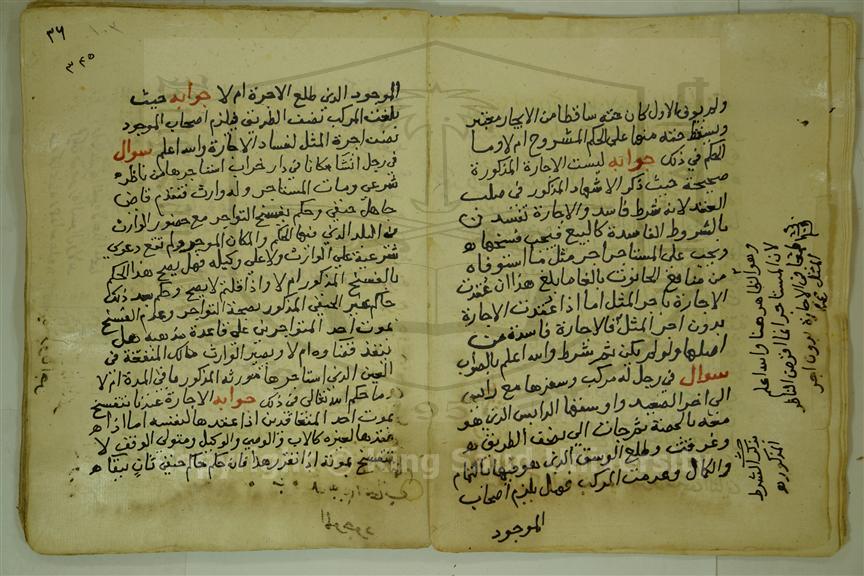 ولم يوف بالاول كان حقه ساقطا من الايجار معتبر
ويسقط حقه منها على الحكم المشروح ام لا وما
الحكم في ذلك جوابه ليست الاجارة المذكورة
صحيحة حيث ذكر الاشهاد المذكور في صلب
العقد لانه شرط فاسد والاجارة تفسد
بالشروط الفاسدة كالبيع فيجب فسخها
ويجب على المستاجر اجر مثل ما استوفاه
من منافع الحانوت بالغا ما بلغ هذا ان عقدت
الاجارة باجر المثل اما اذا عقدت الاجارة
بدون اجر المثل فالاجارة فاسدة من
اصلها ولو لم يكن ثم شرط والله اعلم بالصواب
سوال في رجل له مركب وسفرها مع رايس
الى اخر الصعيد واوسقها الرايس الذي هو
معه بالحصة ثم جات الى نصف الطريق
وغرقت وطلع الوسق الذي هو فيها بالتمام
والكمال وعدمت المركب فهل يلزم اصحاب
الموجود
وهو الظاهر هنا والله اعلم
لان المستاجر انما
الاجارة بدون اجر
المثل
المذكورة
الشرط
٣٦
١٠٢
٣٤٥
الموجود الذي طلع الاجرة ام لا جوابه حيث
بلغت المركب نصف الطريق فيلزم اصحاب الموجود
نصف اجرة المثل لفساد الاجارة والله اعلم سوال
في رجل انشا مكانا في دار خراب استاجرها من ناظره
شرعي ومات المستاجر وله وارث فتقدم قاض
جاهل حنفي وحكم بفسخ التواجر مع حضور الوارث
في البلد الذي فيها الحكم والمكان الموجر ولم تقع دعوى
شرعية على الوارث ولا على وكيله فهل يصح هذا الحكم
بالفسخ المذكور ام لا واذا قلتم لا يصح وحكم بعد ذلك
حاكم غير الحنفي المذكور بصحة التواجر وعدم الفسخ
بموت احد المتواجرين على قاعدة مذهبه هل
ينفذ قضاوه ام لا ويصير الوارث مالك المنفعة في
العين الذي استاجرها مورثه المذكور باقي المدة ام لا
وما حكم الله تعالى في ذلك جوابه الاجارة عندنا تنفسخ
بموت احد المتعاقدين اذا عقدها لنفسه اما اذا
عقدها لغيره كالاب والوصي والوكيل ومتولي الوقف لا
تنفسخ بموته اذا تقرر هذا فان حكم حاكم حنفي ثان ببقا
الموجود
Copyright © King Saud University
1957